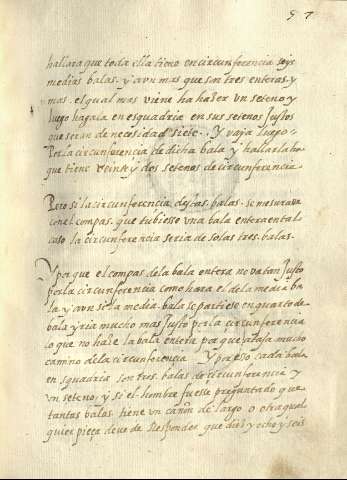 57
hallara que toda ella tiene en circunferencia seys
medias balas. y aun mas que son tres enteras. y
mas. el qual mas viene ha haber un seteno y
luego hagala en esquadria en sus setenos Justos
que seran de necesidad siete.. Y vaya luego
Por la circunferencia de dicha bala y hallarla ha
que tiene veinte y dos setenos de circunferencia.
Pero si la circunferencia destas balas. se mesurasse
con el compas. que tubiesse una bala entera en tal
caso la circunferencia seria de solas tres. balas.
Y por que el compas dela bala entera no va tan Justo
por la circunferencia como hara el dela media ba
la. y aun se la media. bala se partiese en quarto de
bala yria mucho mas Justo por la circunferencia
lo que no hace la bala entera por que ataja mucho
camino dela circunferencia Y por eso cada bala
en squadria son tres. balas de circunferencia y
un seteno. y si el hombre fuese preguntado que
tantas balas tiene un cañon de largo o otra qual
quier pieça deve de Responder que diez y ocho y seis